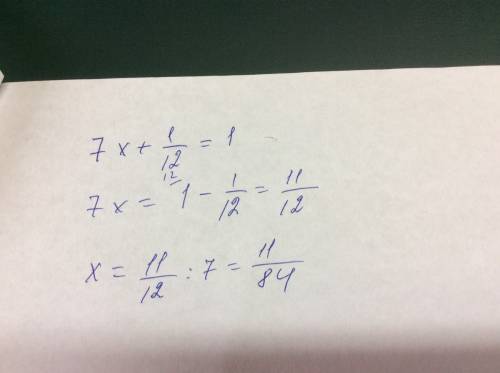 7x + 1/12 = 1
7x = 12/ 1 - 1/12 = 11/12
x = 11/12 : 7 = 11/84